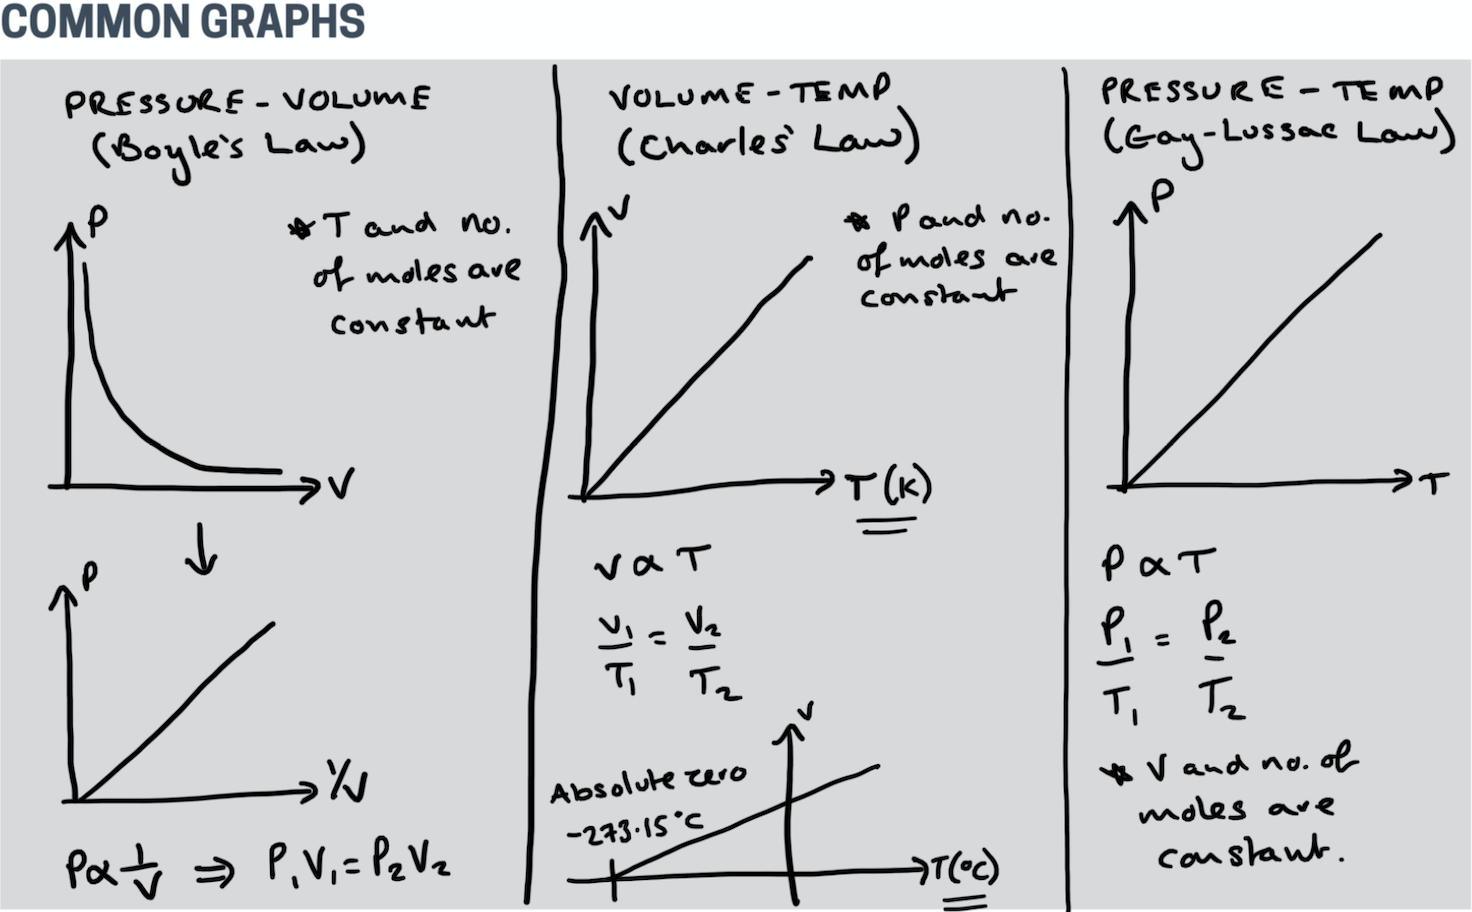 COMMON GRAPHS
PRESSURE - VOLUME
(Boyle's Law)
P
* T and no.
of moles are
constant
V
P
1/V
P∝1/V ⇒ P₁V₁ = P₂V₂
VOLUME - TEMP
(Charles' Law)
V
* P and no.
of moles are
constant
T (K)
V ∝ T
V₁/T₁ = V₂/T₂
V
Absolute zero
-273.15°C
T(°C)
PRESSURE - TEMP
(Gay-Lussac Law)
P
T
P ∝ T
P₁/T₁ = P₂/T₂
* V and no. of
moles are
constant.